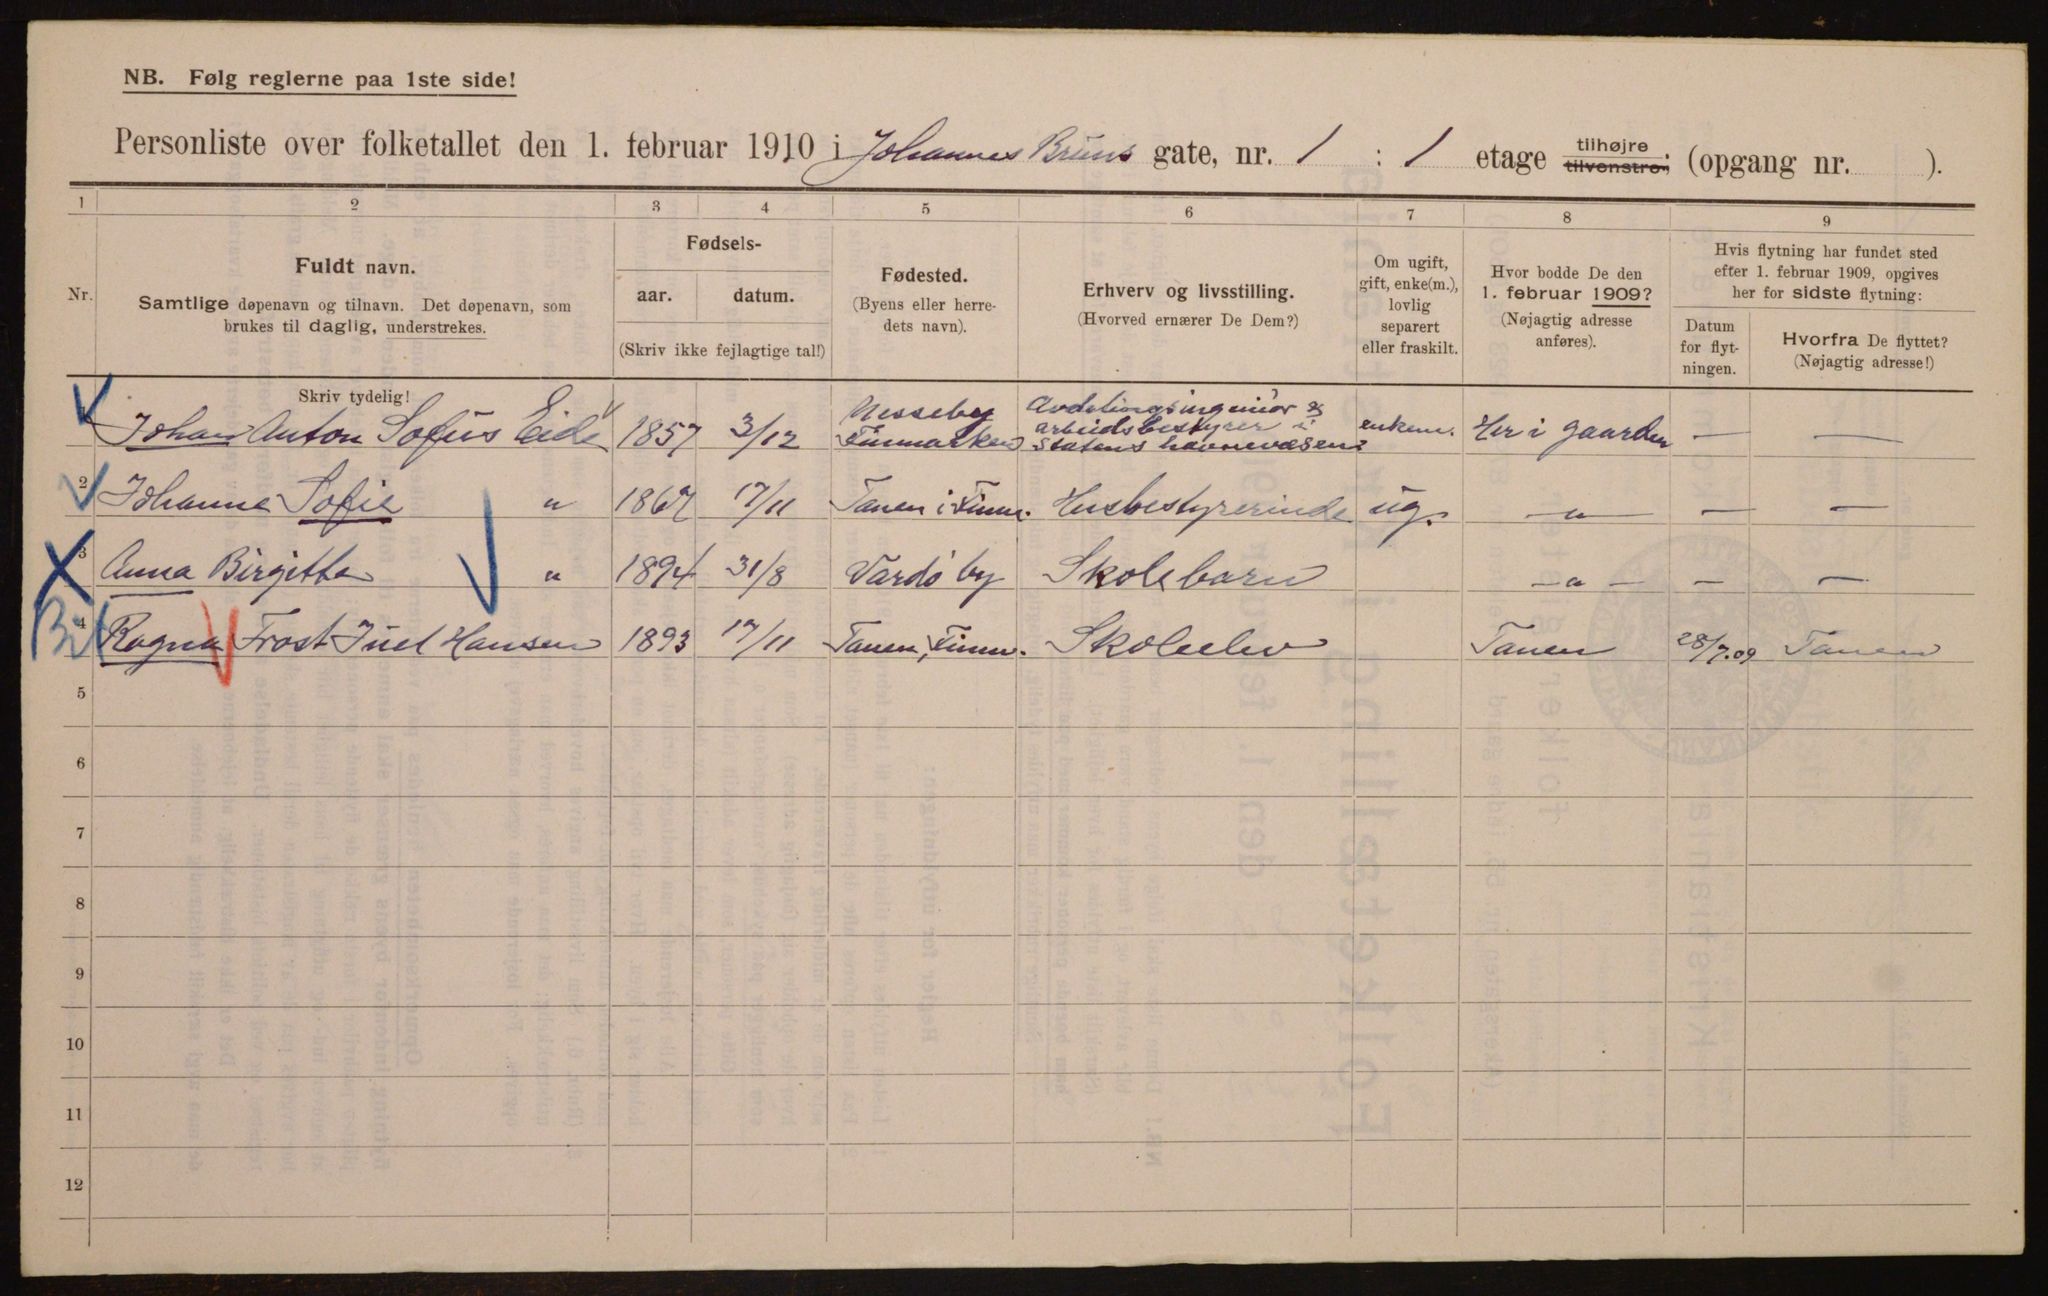 NB. Følg reglerne paa 1ste side!
Personliste over folketallet den 1. februar 1910 i Johannes Bruns gate, nr. 1 : 1 etage tilhøjre tilvenstre; (opgang nr. ).
1 2 3 4 5 6 7 8 9
Nr.
Fuldt navn.
Samtlige døpenavn og tilnavn. Det døpenavn, som
brukes til daglig, understrekes.
Fødsels-
aar. datum.
(Skriv ikke fejlagtige tal!)
Fødested.
(Byens eller herre-
dets navn).
Erhverv og livsstilling.
(Hvorved ernærer De Dem?)
Om ugift,
gift, enke(m.),
lovlig
separert
eller fraskilt.
Hvor bodde De den
1. februar 1909?
(Nøjagtig adresse
anføres).
Hvis flytning har fundet sted
efter 1. februar 1909, opgives
her for sidste flytning:
Datum
for flyt-
ningen.
Hvorfra De flyttet?
(Nøjagtig adresse!)
Skriv tydelig!
Johan Anton Sofus Eide 1857 3/12 Nesseby Finmarken Avdelingsingeniør & arbeidsbestyrer i Statens havnevæsen enkem. Her i gaarden — —
2 Johanne Sofie " 1867 17/11 Tanen i Finm. Husbestyrerinde ug. — " — — —
3 Anna Birgitte " 1894 31/8 Vardø by Skolebarn — " — — —
4 Ragna Frost Juel Hansen 1893 17/11 Tanen, Finm. Skoleelev Tanen 28/7.09 Tanen
5
6
7
8
9
10
11
12